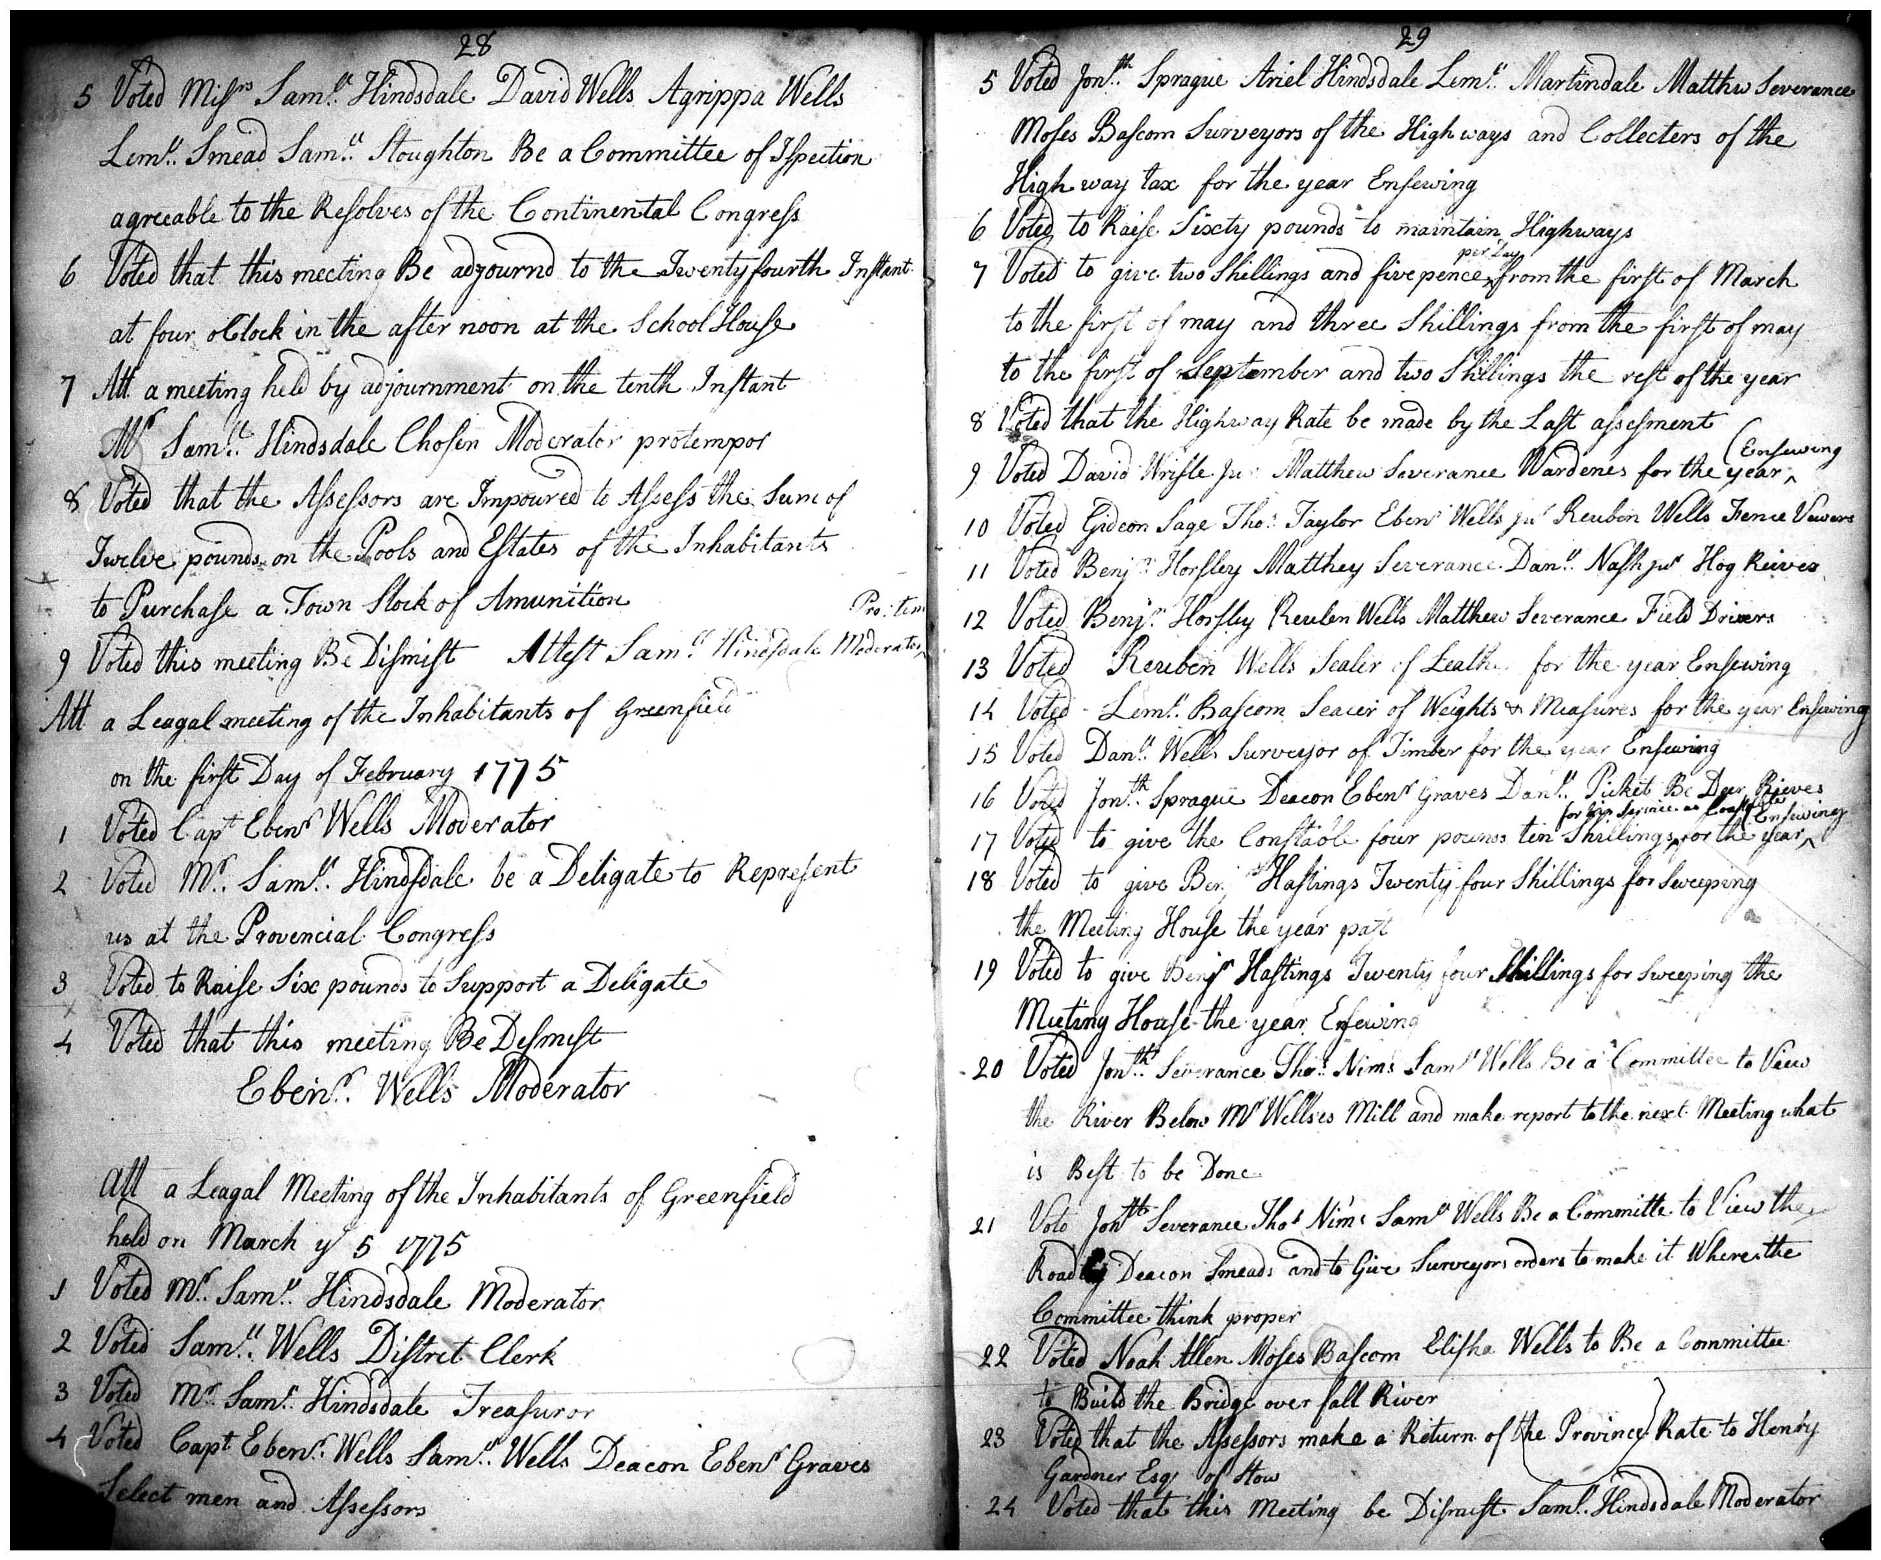 28
5 Voted Missrs Samll Hindsdale David Wells Agrippa Wells
Lemll Smead Samll Stoughton Be a Committee of Ispection
agreeable to the Resolves of the Continental Congress
6 Voted that this meeting Be adjournd to the Twenty fourth Instant
at four oClock in the after noon at the School House
7 Att a meeting held by adjournment on the tenth Instant
Mr Samll Hindsdale Chosen Moderator protempor
8 Voted that the Assessors are Impoured to Assess the Sum of
Twelve pounds on the Pools and Estates of the Inhabitants
to Purchase a Town Stock of Amunition
Pro: tem
9 Voted this meeting Be Dismist Attest Samll Hindsdale Moderator
Att a Leagal meeting of the Inhabitants of Greenfield
on the first Day of February 1775
1 Voted Capt Ebenr Wells Moderator
2 Voted Mr. Samll Hindsdale be a Deligate to Represent
us at the Provencial Congress
3 Voted to Raise Six pounds to Support a Deligate
4 Voted that this meeting Be Desmist
Ebenr. Wells Moderator
Att a Leagal Meeting of the Inhabitants of Greenfield
held on March ye 5 1775
1 Voted Mr. Samll Hindsdale Moderator
2 Voted Samll Wells Distret Clerk
3 Voted Mr Samll Hindsdale Treasuror
4 Voted Capt Ebenr. Wells Samll Wells Deacon Ebenr Graves
Select men and Assessors
29
5 Voted Jonth Sprague Ariel Hindsdale Lemll Martindale Matthw Severance
Moses Bascom Surveyors of the High ways and Collecters of the
High way tax for the year Ensewing
6 Voted to Raise Sixty pounds to maintain Highways
per Day
7 Voted to give two Shillings and five pence from the first of March
to the first of may and three Shillings from the first of may
to the first of September and two Shillings the rest of the year
8 Voted that the Highway Rate be made by the Last assesment
Ensewing
9 Voted David Wrisle Jur Matthew Severance Wardenes for the year
10 Voted Gideon Sage Thos Taylor Ebenr Wells jur Reuben Wells Fence Vewers
11 Voted Benjn Horsley Matthey Severance Danll Nash jur Hog Reives
12 Voted Benjn Horsley Reuben Wells Matthew Severance Field Drivers
13 Voted Reuben Wells Sealer of Leathe for the year Ensewing
14 Voted Lemll Bascom Sealer of Weights & Measures for the year Ensewing
15 Voted Danll Wells Surveyor of Timber for the year Ensewing
16 Voted Jonth Sprague Deacon Ebenr Graves Danll Picket Be Deer Rieves
for his Service as Constable Ensewing
17 Voted to give the Constable four pounds ten Shillings for the year
18 Voted to give Benjn Hastings Twenty four Shillings for Sweeping
the Meeting House the year past
19 Voted to give Benjn Hastings Twenty four Shillings for Sweeping the
Meeting House the year Ensewing
20 Voted Jonth Severance Thos Nims Samll Wells Be a Committee to View
the River Below Mr Wellses Mill and make report to the next Meeting what
is Best to be Done
21 Vote Jonth Severance Thos Nims Samll Wells Be a Committe to View the
Road by Deacon Smeads and to Give Surveyors orders to make it Where the
Committee think proper
22 Voted Noah Allen Moses Bascom Elisha Wells to Be a Committee
to Build the Bridge over fall River
23 Voted that the Assessors make a Return of the Province Rate to Henry
Gardner Esqr of Stow
24 Voted that this Meeting be Dismist Samll. Hindsdale Moderator